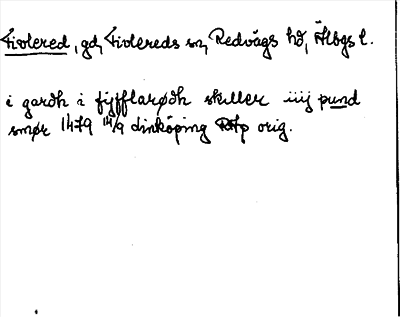 Fivlered, gd, Fivlereds sn, Redvägs hd, Älvbgs l.
i gardh i fijfflarødh skiller iiij pund
smør 1479 14/9 Linköping RAp orig.